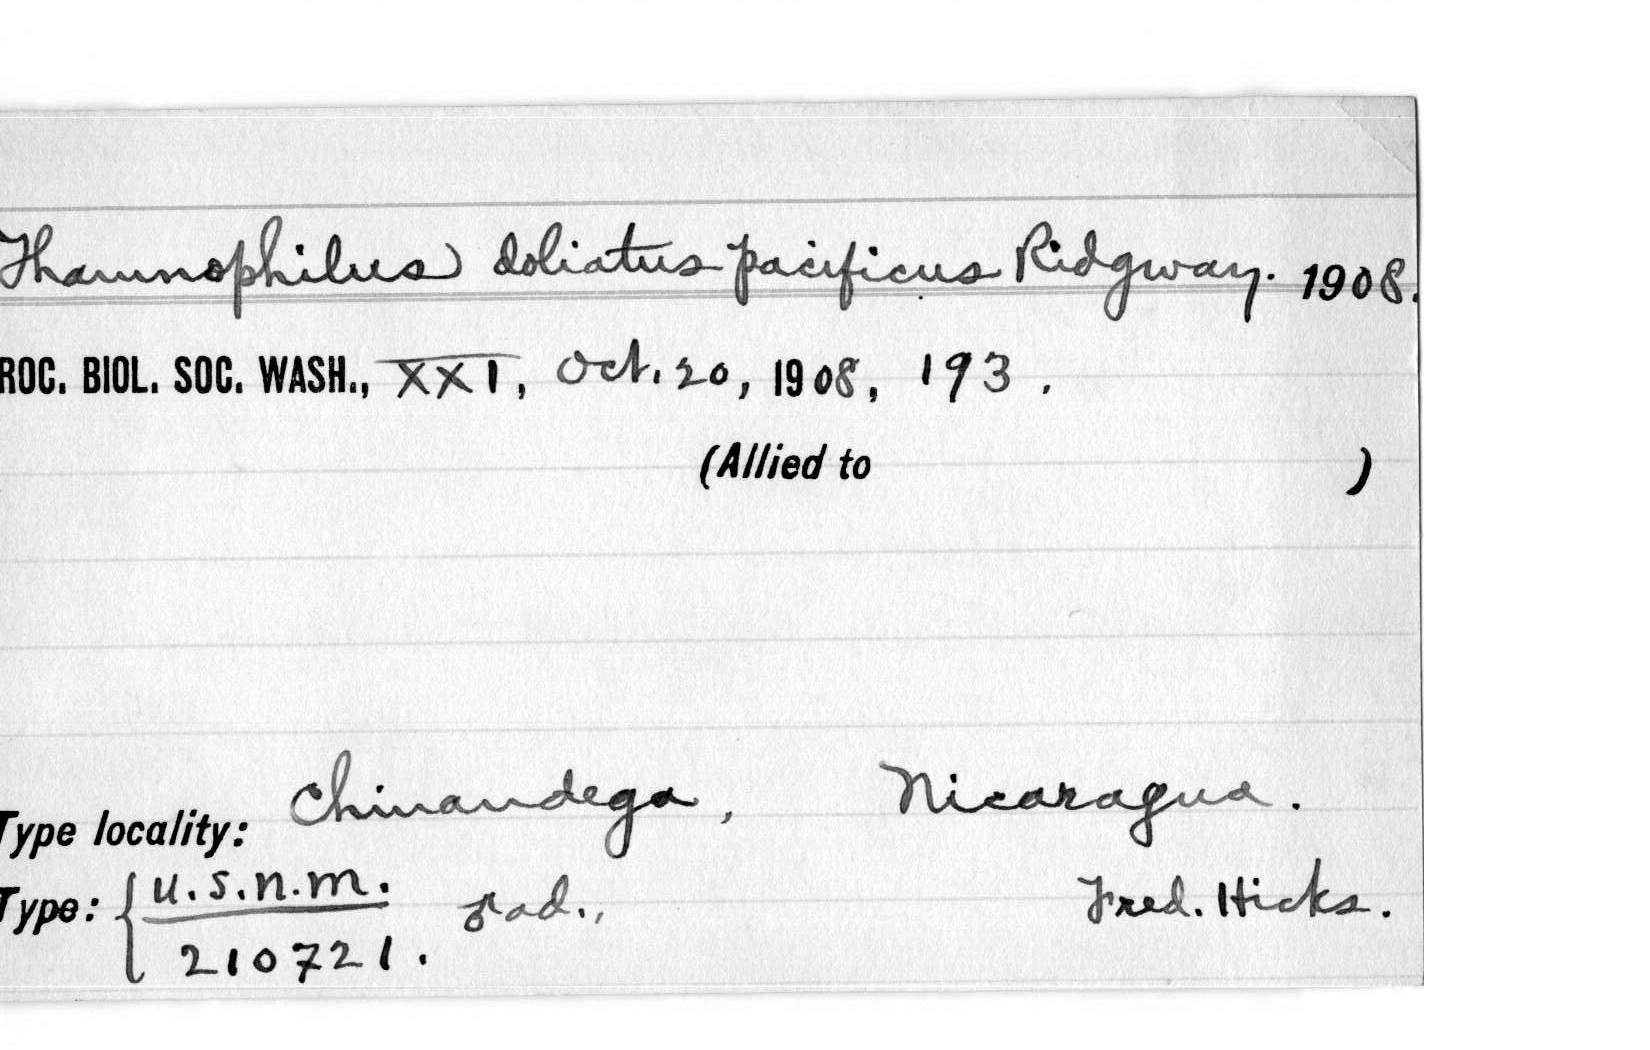 Thamnophilus doliatus pacificus Ridgway. 1908.
ROC. BIOL. SOC. WASH., XXI, Oct. 20, 1908, 193.
(Allied to )
Type locality: Chinandega, Nicaragua.
Type: { U.S.N.M. ♂ ad., Fred. Hicks.
210721.